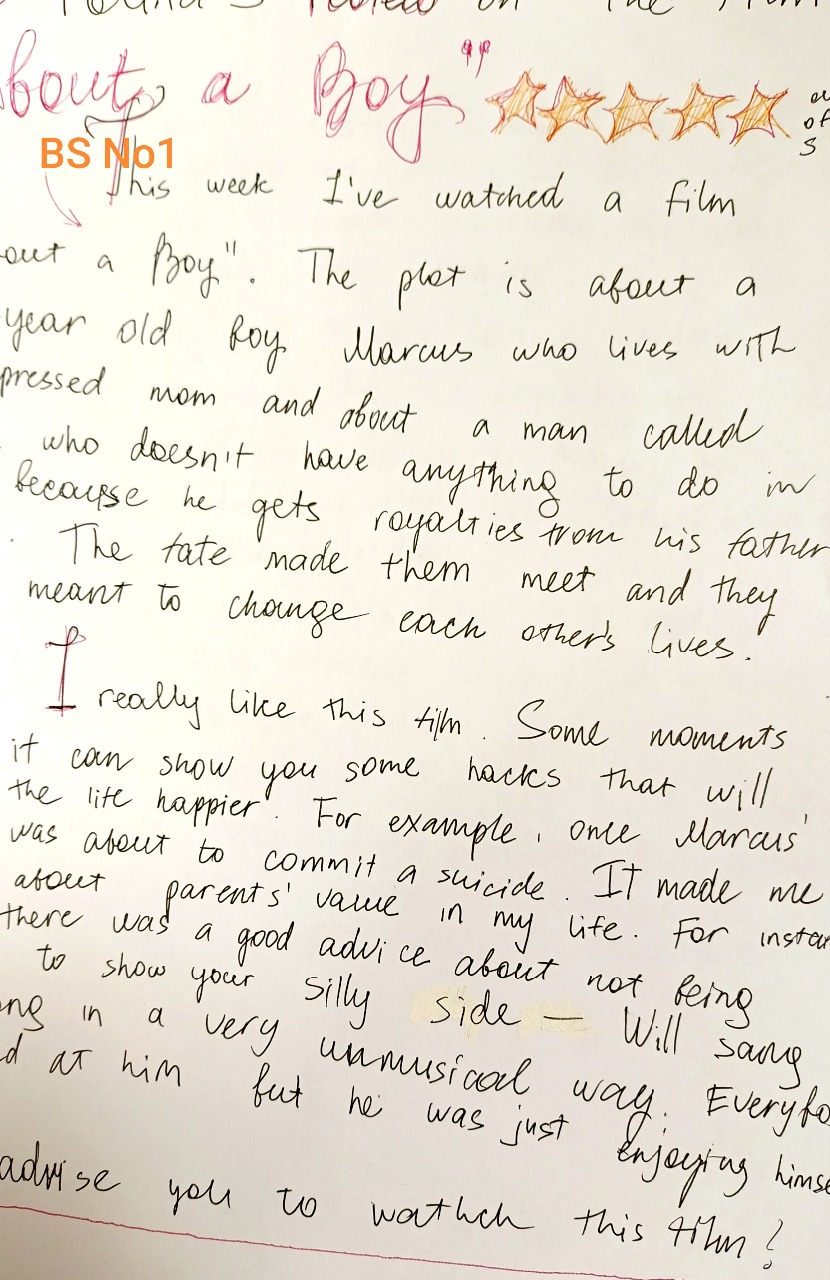 review on the film
bout a Boy"
out
of
5
BS No1
This week I've watched a film
out a Boy". The plot is about a
year old boy Marcus who lives with
pressed mom and about a man called
who doesn't have anything to do in
because he gets royalties from his father
The fate made them meet and they
meant to change each other's lives.
I really like this film. Some moments
it can show you some hacks that will
the life happier. For example, once Marcus'
was about to commit a suicide. It made me
about parents' value in my life. For instan
there was a good advice about not being
to show your silly side — Will sang
ng in a very unmusical way. Everybo
d at him but he was just enjoying himse
advise you to wathch this film!